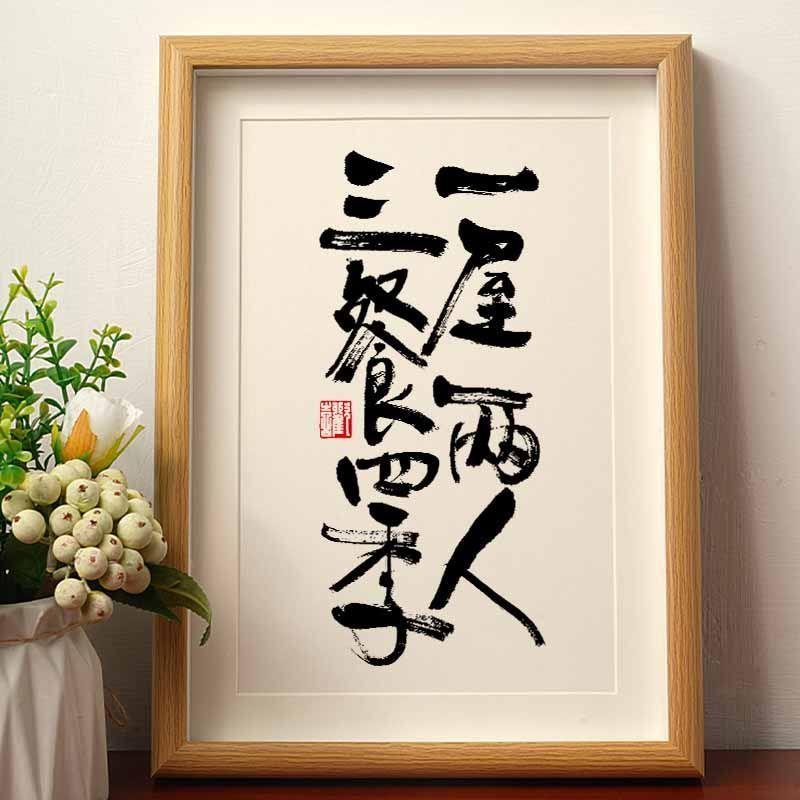 一屋两人
三餐四季